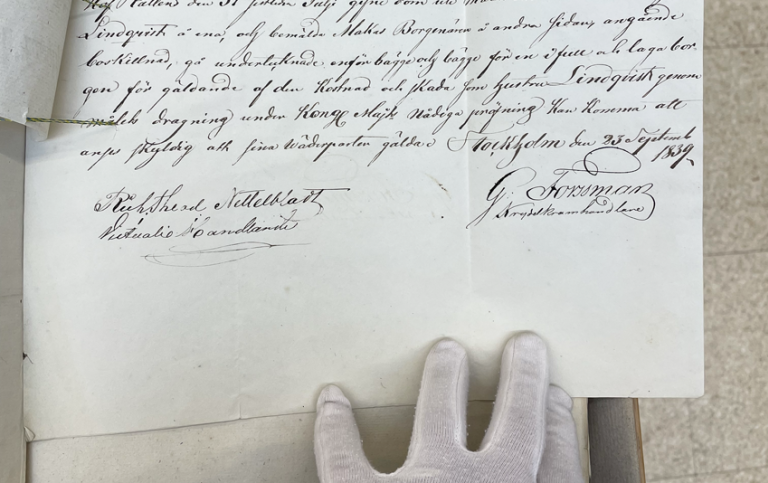 Rätten den 31 sistlidne Julj
Lindqvist å ena, och bemälde Makas Borgenärer å andra sidan, angående
boskillnad, gå undertecknade en för bägge och bägge för en i full och laga bor-
gen för gäldande af den Kostnad och skada som hustru Lindqvist genom
målets dragning under Kongl Majts Nådiga pröfning Kan komma att
anses skyldig att sina Wederparter gälda. Stockholm den 23 Septemb
1839.
Nettelbladt
G. Forssman
Victualie Handlande
Kryddkramhandlare